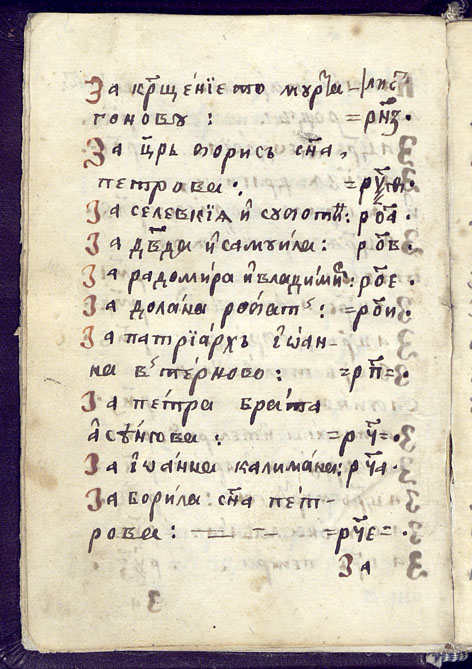 За кр҃щенїето мурта – лис
гоновꙋ : =рн҃з·
За цр҃ь борисъ сн҃а,
петрова :
За селевкїѧ и҆ : ро҃а
За дв҃да и҆ самꙋила : ро҃в·
За радомира и҆ владимиⷬ : ро҃е·
За долѧна : ро҃и·
За патрїа́рхъ і҆ѡан-
на в терново : =рп҃=·
За пе́тра брата
а҆сѣ́нова : =рч҃=·
За і҆ѡанна калимана : рч҃а·
За борила сн҃а пет-
рова : =рч҃е=·
За